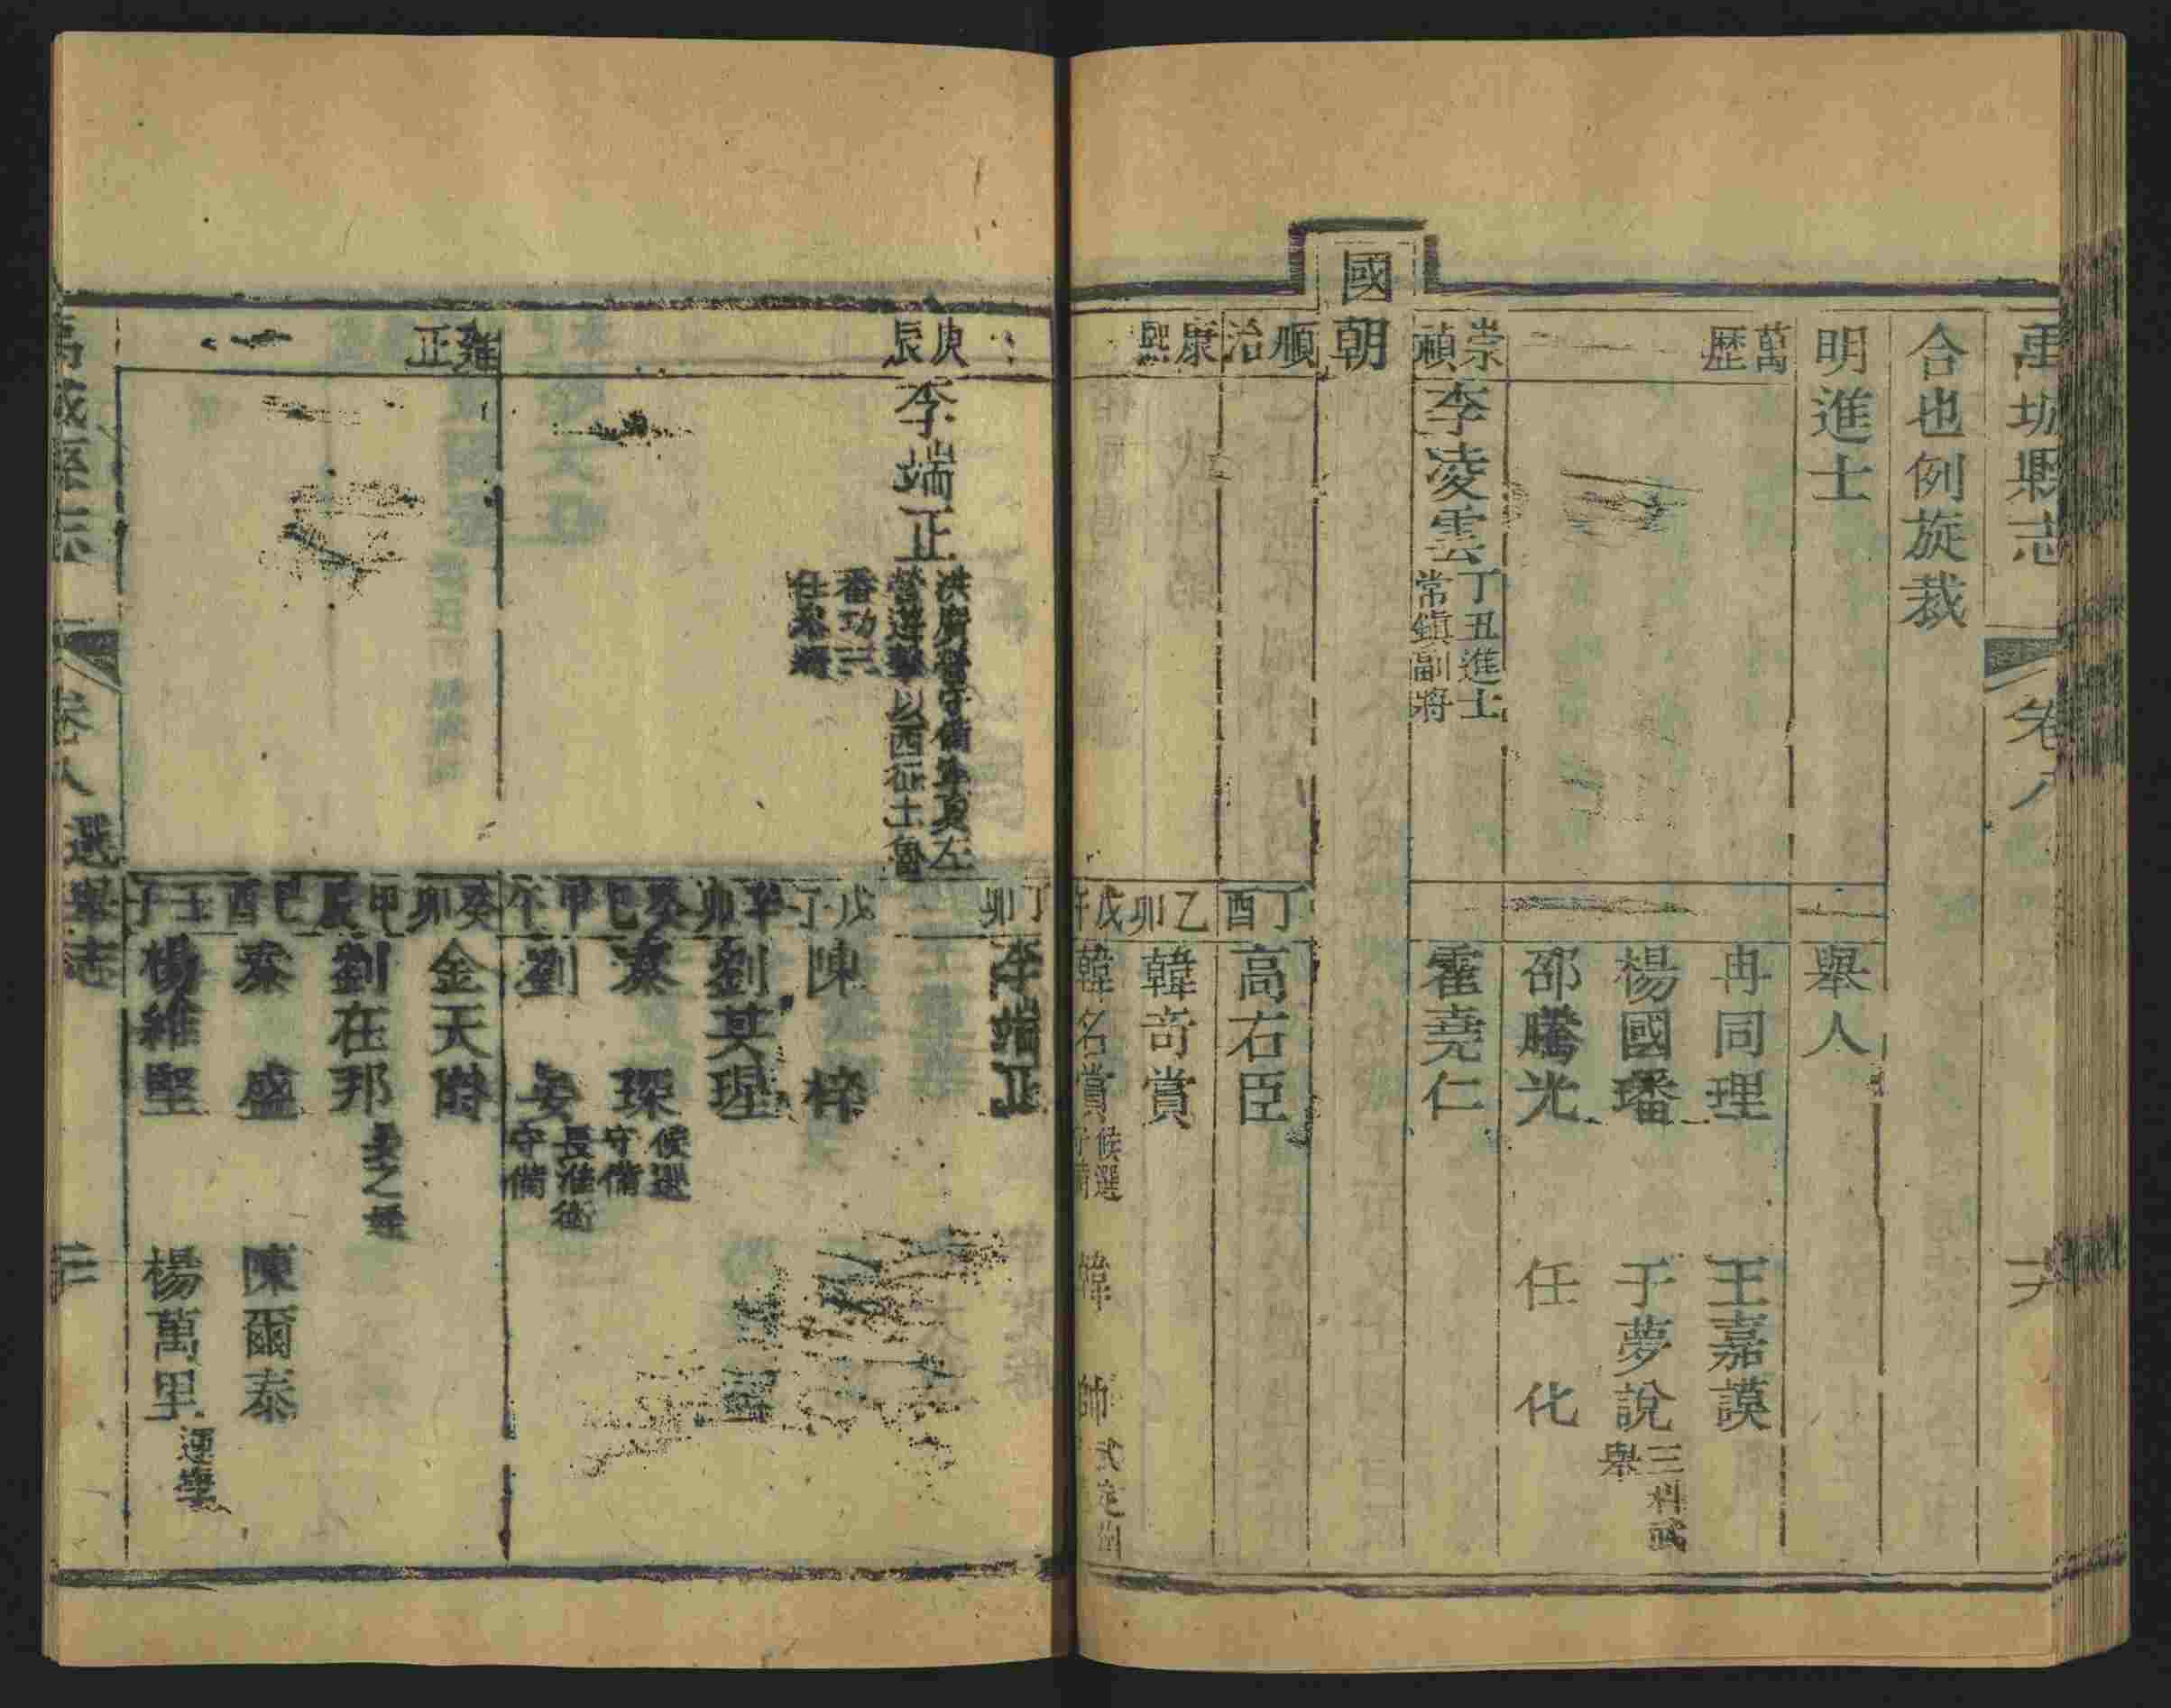 禹城縣志
卷八
合也例旋裁
明進士
舉人
萬歷
冉同理
王嘉謨
楊國璠
于夢說三科武舉
邵騰光
任化
崇禎
李凌雲丁丑進士常鎮副將
霍堯仁
國朝
順治
丁酉
高右臣
康熙
乙卯
韓奇賞
戊午
韓名賞候選守備
韓帥
丁卯
李端正
庚辰
李端正洪廣營守備寧夏左營遊擊以西征土魯番功二任參將
戊子
陳梓
辛卯
劉其珵
癸巳
秦琛候選守備
甲午
劉安長淮衛守備
雍正
癸卯
金天爵
甲辰
劉在邦
己酉
秦盛
陳爾泰
壬子
楊維堅
楊萬里
禹城縣志
卷八
選舉志